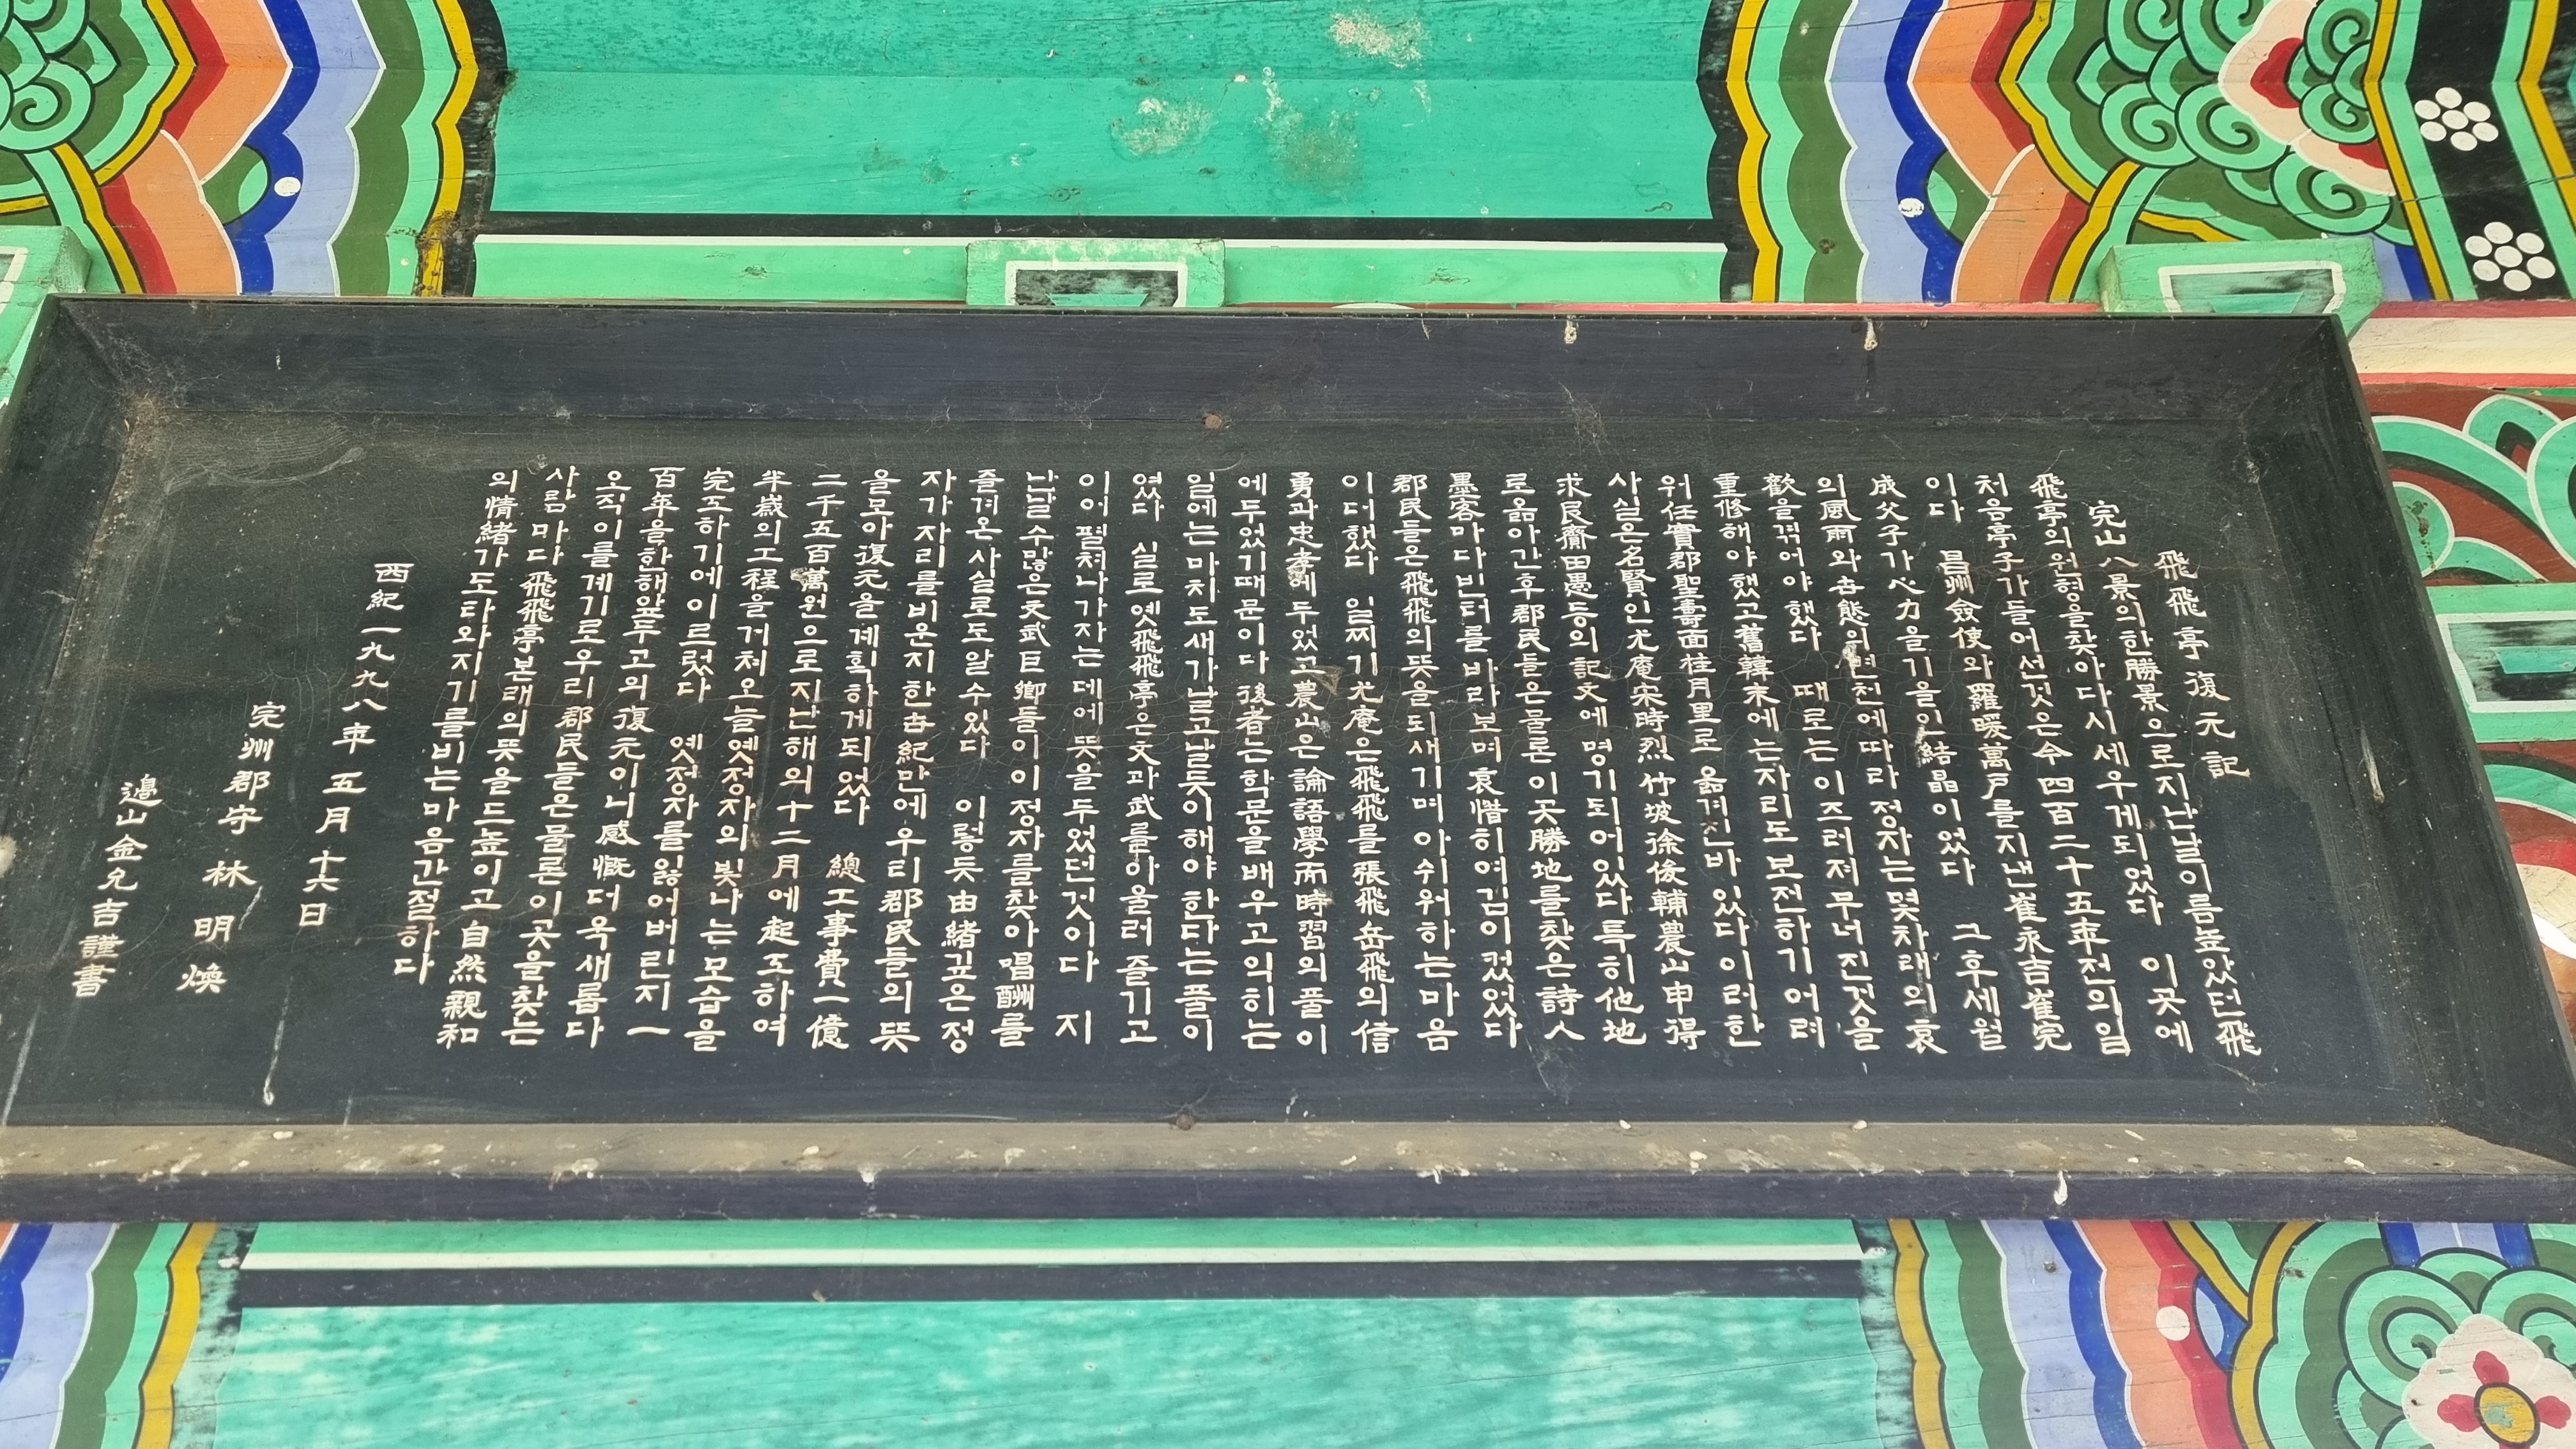 飛飛亭復元記
完山八景의한勝景으로지난날이름높았던飛
飛亭의원형을찾아다시세우게되었다 이곳에
처음亭子가들어선것은今四百二十五年전의일
이다 昌州僉使와羅暖萬戶를지낸崔永吉崔完
成父子가心力을기울인結晶이었다 그후세월
의風雨와世態의변천에따라정자는몇차례의哀
歡을겪어야했다 때로는이즈러져무너진것을
重修해야했고舊韓末에는자리도보전하기어려
워任實郡聖壽面桂月里로옮겨진바있다이러한
사실은名賢인尤庵宋時烈竹坡徐俊輔農山申得
求艮齋田愚등의記文에명기되어있다특히他地
로옮아간후郡民들은물론이곳勝地를찾은詩人
墨客마다빈터를바라보며哀惜히여김이컸었다
郡民들은飛飛의뜻을되새기며아쉬워하는마음
이더했다 일찌기尤庵은飛飛를張飛岳飛의信
勇과忠孝에두었고農山은論語學而時習의풀이
에두었기때문이다後者는학문을배우고익히는
일에는마치도새가날고날듯이해야한다는풀이
였다 실로옛飛飛亭은文과武를아울러즐기고
이어펼쳐나가자는데에뜻을두었던것이다 지
난날수많은文武巨鄕들이이정자를찾아唱酬를
즐겨온사실로도알수있다 이렇듯由緖깊은정
자가자리를비운지한世紀만에우리郡民들의뜻
을모아復元을계획하게되었다 總工事費一億
二千五百萬원으로지난해의十二月에起工하여
半歲의工程을거쳐오늘옛정자의빛나는모습을
完工하기에이르렀다 옛정자를잃어버린지一
百年을한해앞두고의復元이니感慨더욱새롭다
오직이를계기로우리郡民들은물론이곳을찾는
사람마다飛飛亭본래의뜻을드높이고自然親和
의情緖가도타와지기를비는마음간절하다
西紀一九九八年五月十六日
完州郡守 林明煥
邊山金允吉謹書